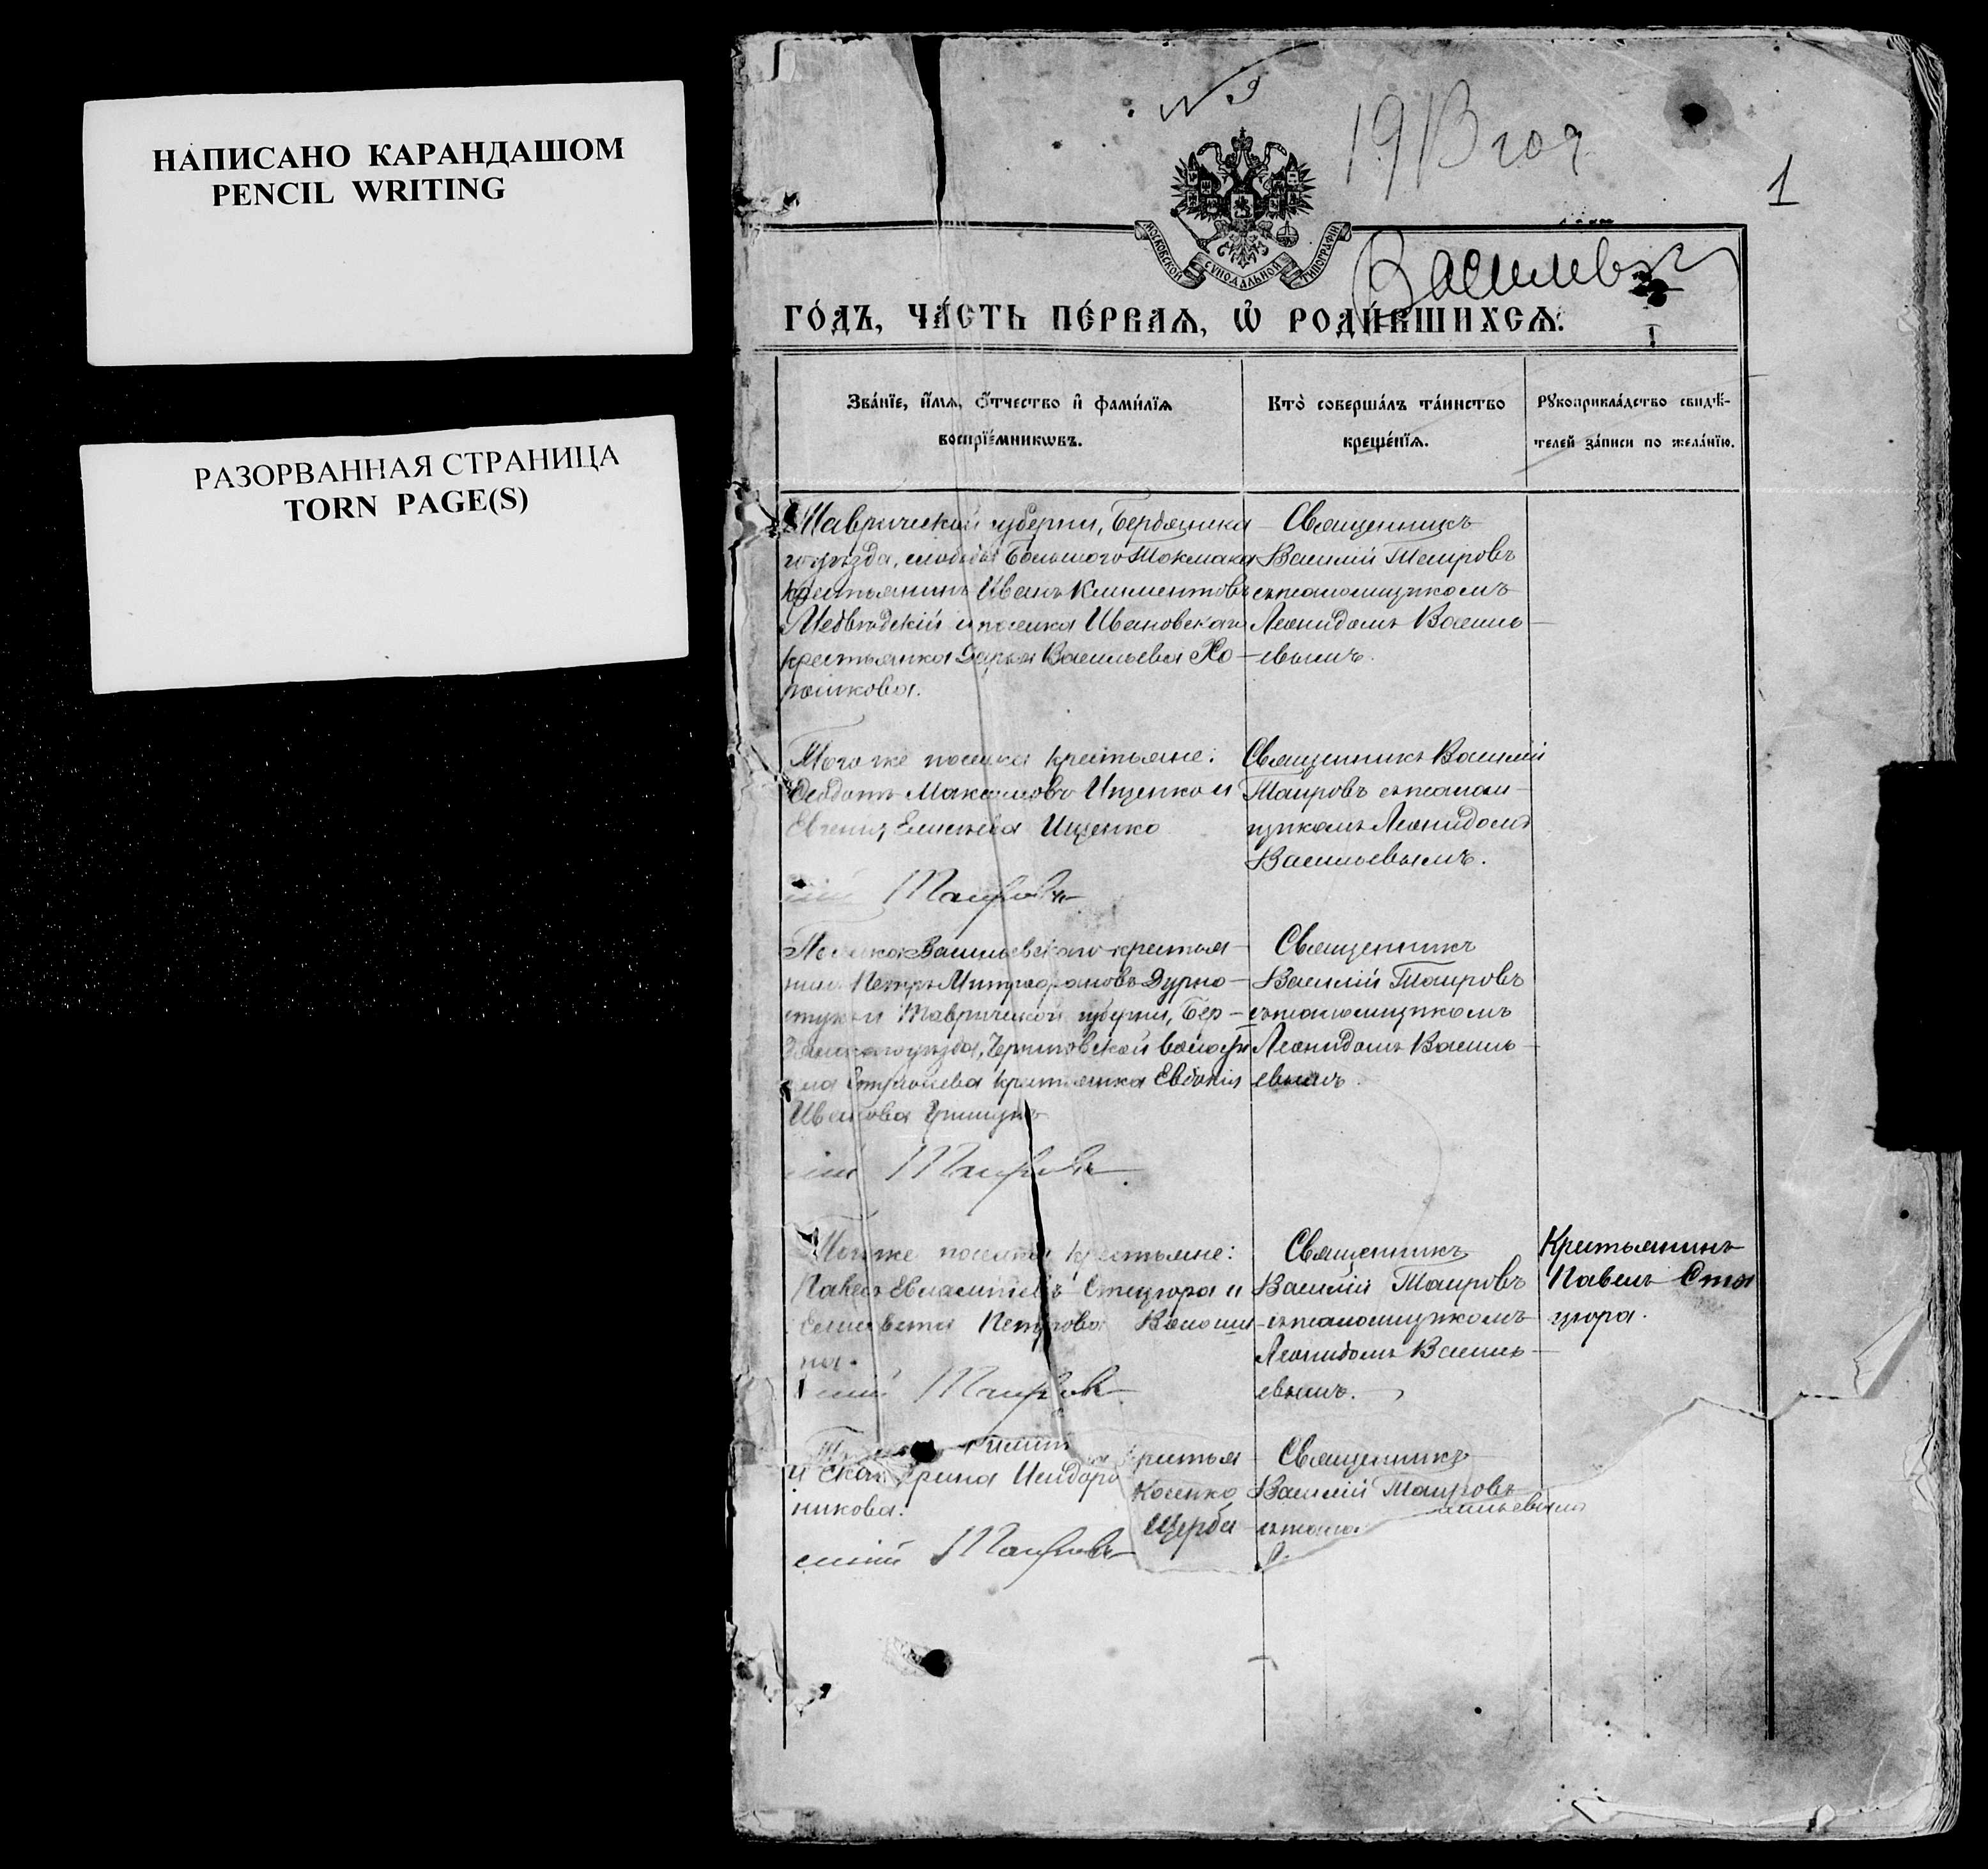 НАПИСАНО КАРАНДАШОМ
PENCIL WRITING
РАЗОРВАННАЯ СТРАНИЦА
TORN PAGE(S)
1913 год
1
МОСКОВСКОЙ СѴНОДАЛЬНОЙ ТИПОГРАФІИ
ГО́ДЪ, ЧА́СТЬ ПЕ́РВАѦ, Ѡ҆ РОДИ́ВШИХСѦ.
Зва́нїе, и҆́мѧ, ѻ҆́тчество и҆ фами́лїѧ
воспрїе́мникѡвъ.
Кто̀ соверша́лъ та́инство
креще́нїѧ.
Рꙋкоприкла́дство свидѣ́-
телей за́писи по жела́нїю.
Таврической губерніи, Бердянска
го уѣзда, слободы Большого Токмака
крестьянинъ Иванъ Климентовъ
Медвѣдскій и поселка Ивановскаго
крестьянка Дарья Васильева Хо-
рошкова.
Священникъ
Василій Таировъ
съ псаломщикомъ
Леонидомъ Василь-
евымъ.
Того же поселка крестьяне:
Максимовъ Ищенко и
Евгенія Елисѣева Ищенко
Священникъ Василій
Таировъ съ псалом-
щикомъ Леонидомъ
Васильевымъ.
Таировъ
Поселка Васильевскаго крестья-
нинъ Петръ Митрофановъ Дурно-
Таврической губерніи, Бер-
уѣзда, Черниговской волости
крестьянка Евдокія
Иванова
Священникъ
Василій Таировъ
съ псаломщикомъ
Леонидомъ Василь-
евымъ.
Таировъ
Того же поселка крестьяне:
Павелъ Стацюра и
Елисавета Петрова Волоши-
на.
Священникъ
Василій Таировъ
съ псаломщикомъ
Леонидомъ Василь-
евымъ.
Крестьянинъ
Павелъ Ста
цюра.
силій Таировъ
крестья
Косенко
и Исидоро
Щерба
никова.
Священникъ
Василій Таировъ
съ псало
сильевымъ
силій Таировъ